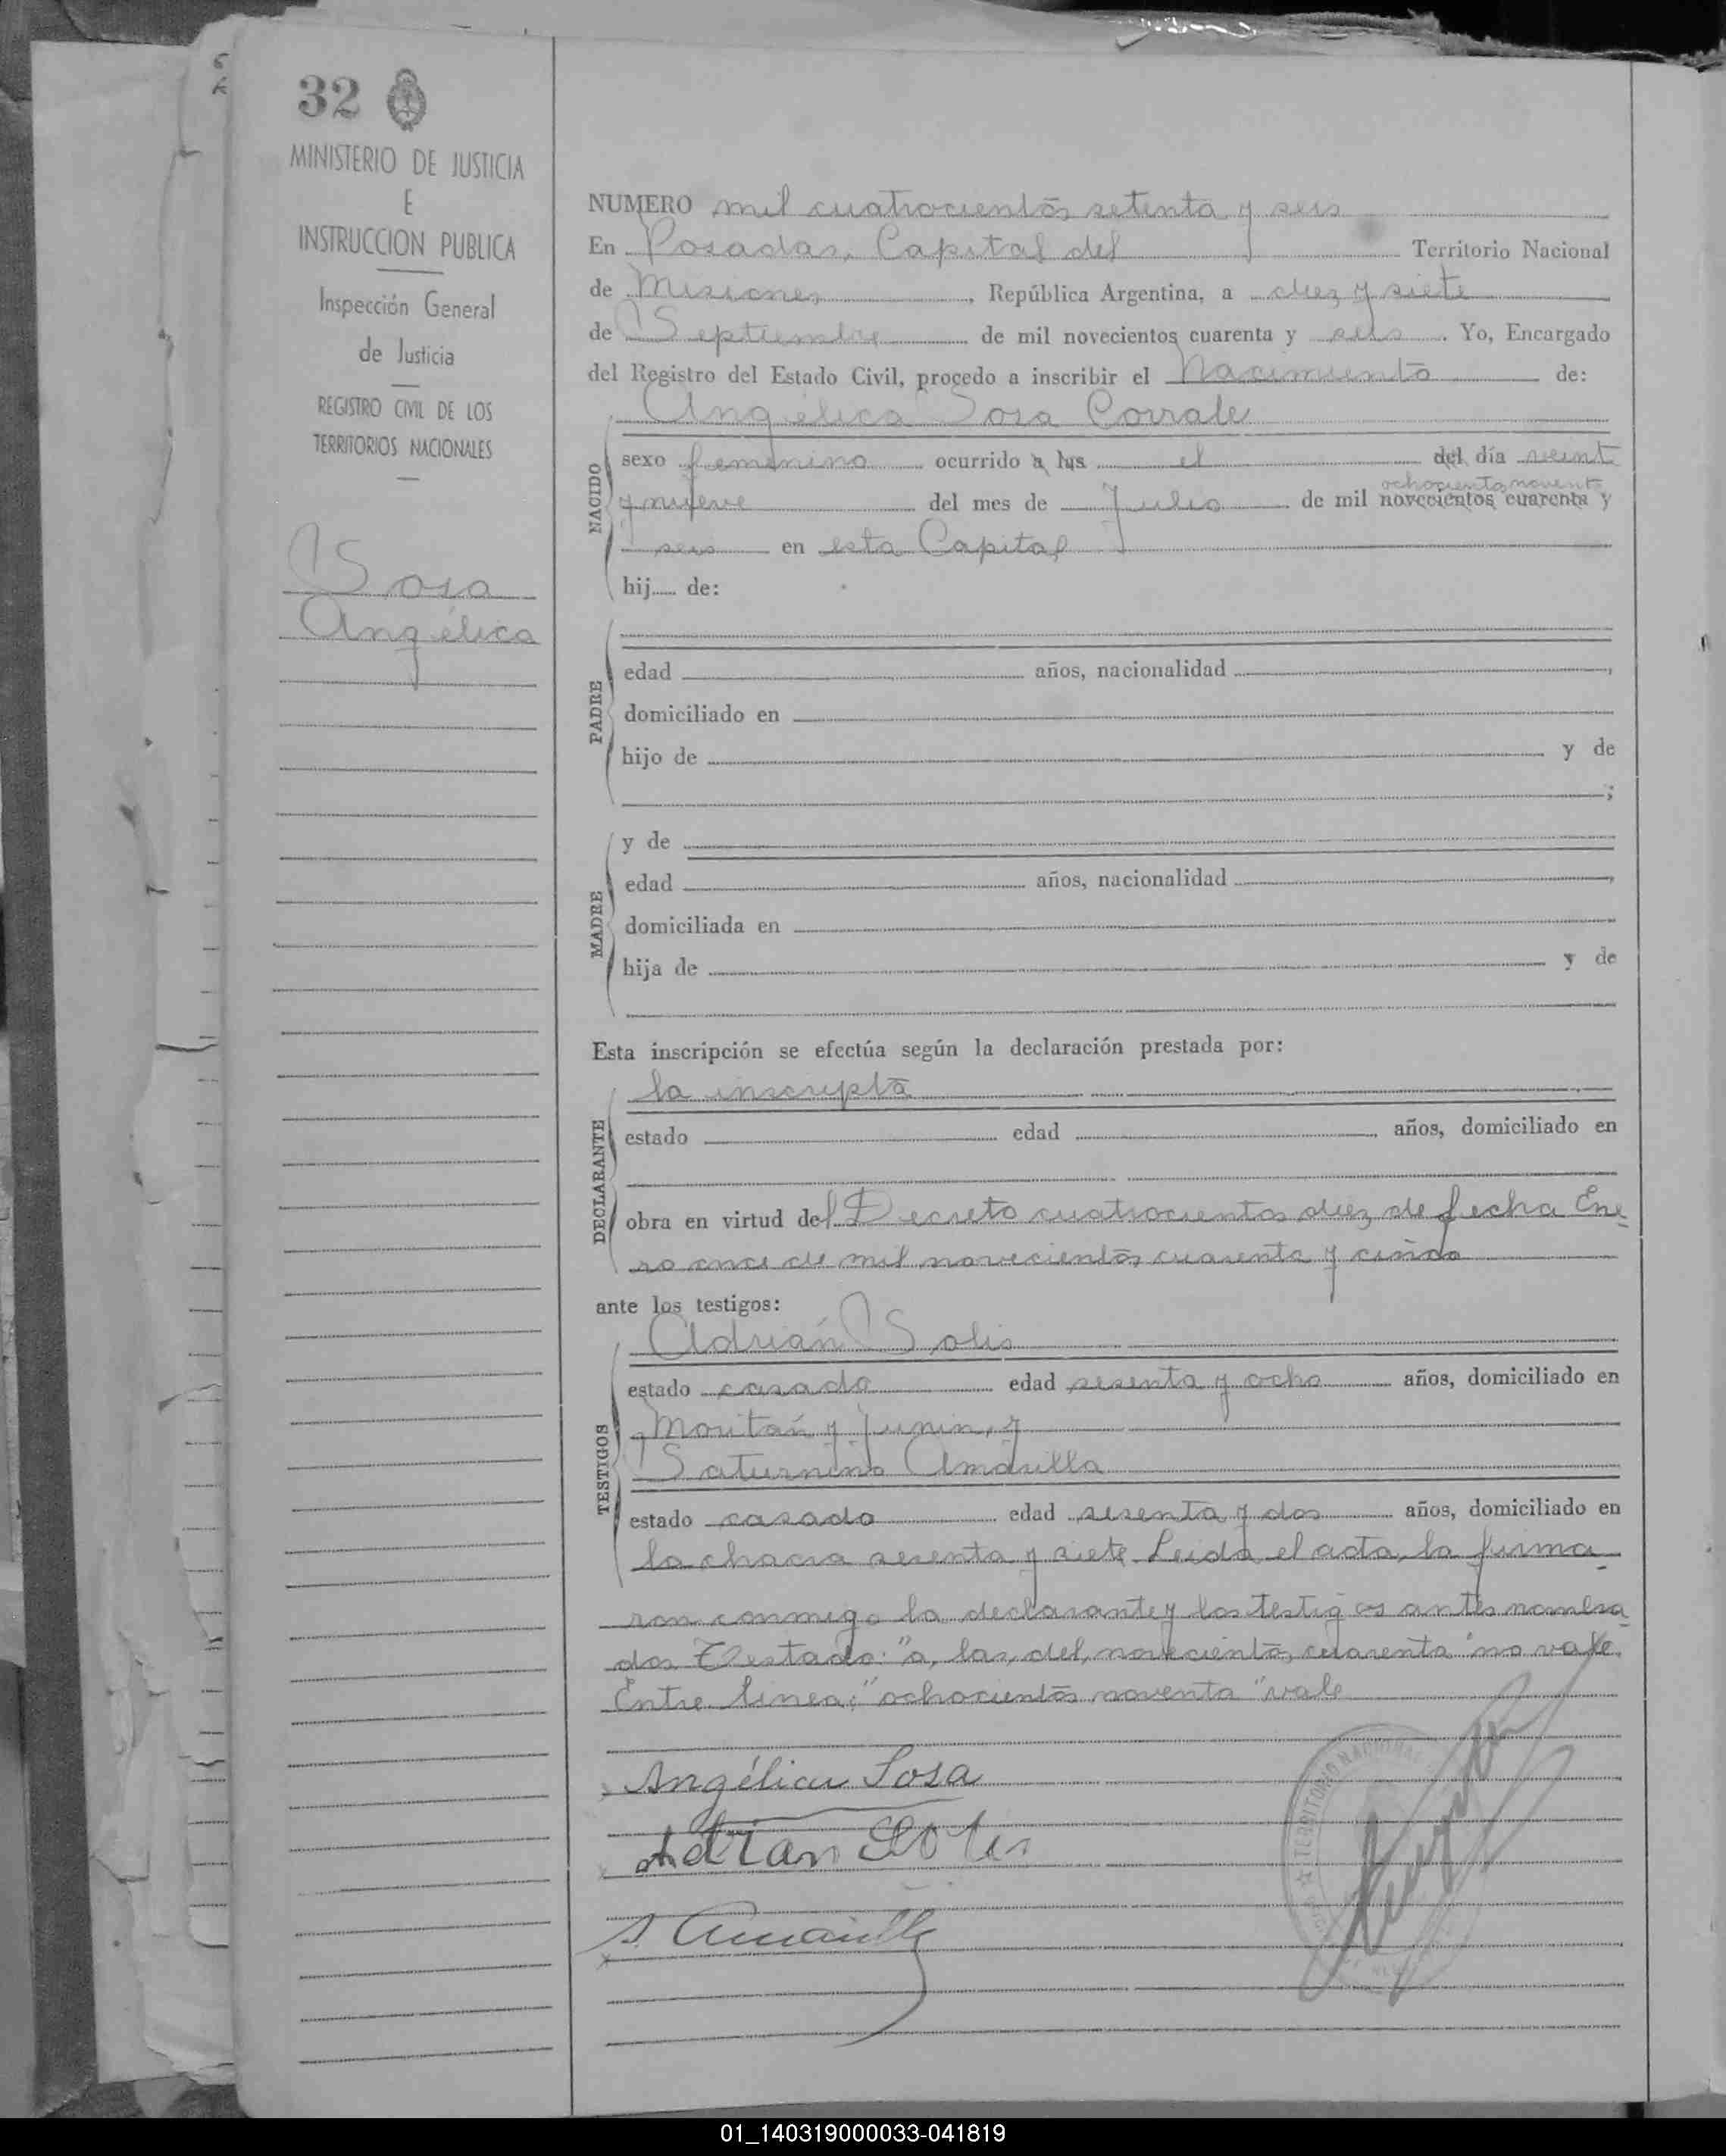 32
MINISTERIO DE JUSTICIA
E
INSTRUCCION PUBLICA
Inspección General
de Justicia
REGISTRO CIVIL DE LOS
TERRITORIOS NACIONALES
Sosa
Angélica
NUMERO mil cuatrocientos setenta y seis
En Posadas, Capital del Territorio Nacional
de Misiones, República Argentina, a diez y siete
de Septiembre de mil novecientos cuarenta y seis. Yo, Encargado
del Registro del Estado Civil, procedo a inscribir el Nacimiento de:
Angélica Sosa Corrale
NACIDO
sexo femenino ocurrido a las el del día veint
ochocientos noventa
y nueve del mes de Julio de mil novecientos cuarenta y
seis en esta Capital
hij..... de:
PADRE
edad años, nacionalidad ,
domiciliado en
hijo de y de
;
MADRE
y de
edad años, nacionalidad ,
domiciliada en
hija de y de
Esta inscripción se efectúa según la declaración prestada por:
DECLARANTE
la inscripta
estado edad años, domiciliado en
obra en virtud del Decreto cuatrocientos diez de fecha Ene
ro once de mil novecientos cuarenta y cinco
ante los testigos:
TESTIGOS
Adrián Solis
estado casado edad sesenta y ocho años, domiciliado en
Moritán y Junin, y
Saturnino Amarilla
estado casado edad sesenta y dos años, domiciliado en
la chacra sesenta y siete. Leida el acta, la firma
ron conmigo la declarante y los testigos antes nombra
dos Testado: "a, las, del, novecientos, cuarenta" no vale.
Entre linea: "ochocientos noventa" vale
Angélica Sosa
Adrian Solis
S. Amarilla
TERRITORIO NACIONAL
01_140319000033-041819